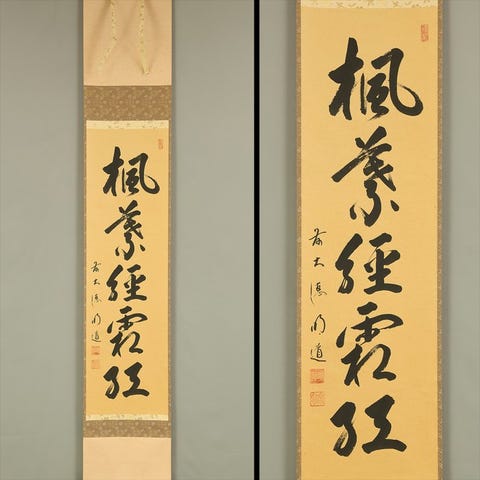 楓葉經霜紅
前大德 明道
楓葉經霜紅
前大德 明道